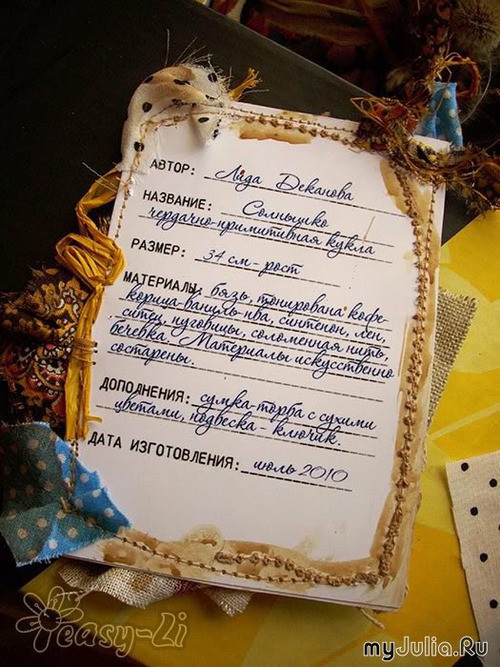 АВТОР: Лида Деканова
НАЗВАНИЕ: Солнышко
чердачно-примитивная кукла
РАЗМЕР: 34 см - рост
МАТЕРИАЛЫ: бязь, тонирована кофе-
корица-ваниль-пва, синтепон, лен,
ситец, пуговицы, соломенная нить,
бечевка. Материалы искусственно
состарены.
ДОПОЛНЕНИЯ: сумка-торба с сухими
цветами, подвеска - ключик.
ДАТА ИЗГОТОВЛЕНИЯ: июль 2010
easy-Li
myJulia.Ru